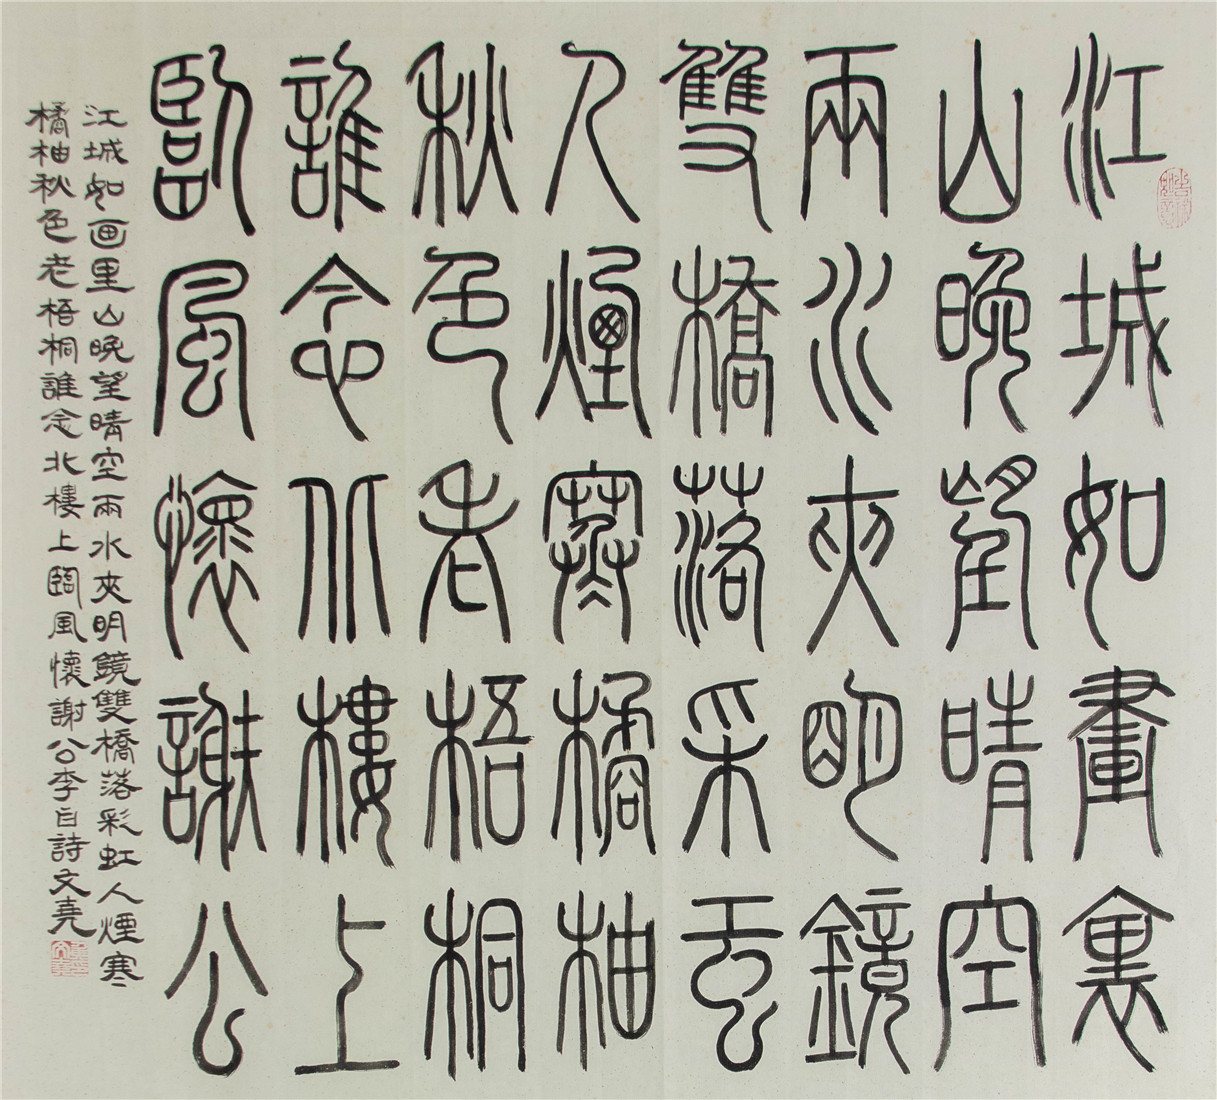 江城如畫裏
山晚望晴空
兩水夾明鏡
雙橋落采虹
人煙寒橘柚
秋色老梧桐
誰念北樓上
臨風懷謝公
江城如画里山晚望晴空兩水夾明鏡雙橋落彩虹人煙寒
橘柚秋色老梧桐誰念北樓上臨風懷謝公李白詩文堯